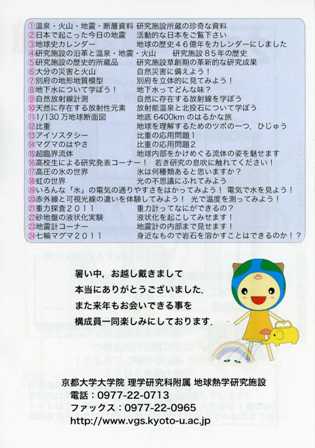 ①温泉・火山・地震・断層資料 研究施設所蔵の珍奇な資料
②日本で起こった今日の地震 活動的な日本をご覧下さい
③地球史カレンダー 地球の歴史４６億年をカレンダーにしました
④研究施設の沿革と温泉・地震・火山 研究施設８５年の歴史
⑤研究施設の歴史的所蔵品 研究施設草創期の革新的な研究成果
⑥大分の災害と火山 自然災害に備えよう！
⑦別府の地形地質模型 別府を立体的に見てみよう！
⑧地下水について学ぼう！ 地下水ってどんな味？
⑨自然放射線計測 自然に存在する放射線を学ぼう
⑩天然に存在する放射性元素 放射能温泉と北投石について学ぼう
⑪1/130 万地球断面図 地底 6400km のはるかな旅
⑫比重 地球を理解するためのツボの一つ、ひじゅう
⑬アイソスタシー 比重の応用問題１
⑭マグマのはやさ 比重の応用問題２
⑮超臨界流体 地球内部をかけめぐる流体の姿を魅せます
⑯高校生による研究発表コーナー！ 若き研究の息吹に触れてください！
⑰高圧の氷の世界 氷は何種類あると思いますか？
⑱虹の世界 光の不思議にふれてみよう
⑲いろんな「水」の電気の通りやすさをはかってみよう！ 電気で水を見よう！
⑳赤外線と可視光線の違いを体験してみよう！ 光で温度を測ってみよう！
重力探査２０１１ 重力計ってなにができるの？
砂地盤の液状化実験 液状化を起こしてみせます！
地震計コーナー 地震計の内部まで見せます！
七輪マグマ２０１１ 身近なもので岩石を溶かすことはできるのか！？
暑い中，お越し戴きまして
本当にありがとうございました．
また来年もお会いできる事を
構成員一同楽しみにしております．
京都大学大学院 理学研究科附属 地球熱学研究施設
電話：0977-22-0713
ファックス：0977-22-0965
http://www.vgs.kyoto-u.ac.jp